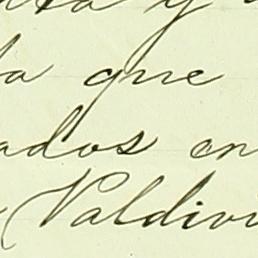 y
a que
ados en
Valdivi